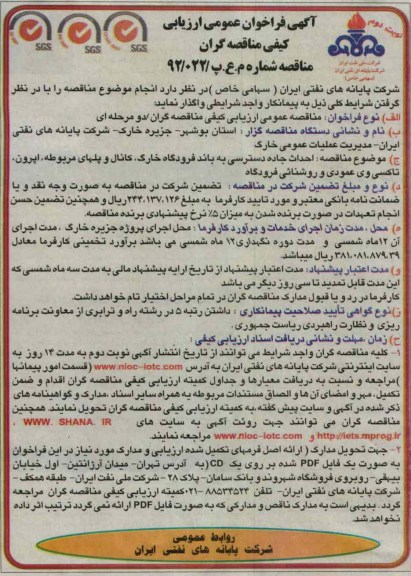 نوبت دوم
آگهی فراخوان عمومی ارزیابی
کیفی مناقصه گران
مناقصه شماره م.ع.پ/۹۲/۰۲۲
شرکت ملی نفت ایران
شرکت پایانه های نفتی ایران
(سهامی خاص)
SGS SGS SGS
شرکت پایانه های نفتی ایران ( سهامی خاص )در نظر دارد انجام موضوع مناقصه را با در نظر
گرفتن شرایط کلی ذیل به پیمانکار واجد شرایطی واگذار نماید:
الف) نوع فراخوان : مناقصه عمومی ارزیابی کیفی مناقصه گران /دو مرحله ای
ب) نام و نشانی دستگاه مناقصه گزار : استان بوشهر- جزیره خارک- شرکت پایانه های نفتی
ایران- مدیریت عملیات عمومی خارک
ج) موضوع مناقصه : احداث جاده دسترسی به باند فرودگاه خارک، کانال و پلهای مربوطه، اپرون،
تاکسی وی عمودی و روشنائی فرودگاه
د) نوع و مبلغ تضمین شرکت در مناقصه : تضمین شرکت در مناقصه به صورت وجه نقد و یا
ضمانت نامه بانکی معتبر و مورد تایید کارفرما به مبلغ ریال و همچنین تضمین حسن
انجام تعهدات در صورت برنده شدن به میزان ۵٪ نرخ پیشنهادی برنده مناقصه.
ه) محل ، مدت زمان اجرای خدمات و برآورد کارفرما : محل اجرای پروژه جزیره خارگ ، مدت اجرای
آن ۱۲ماه شمسی و مدت دوره نگهداری ۱۲ ماه شمسی می باشد برآورد تخمینی کارفرما معادل
ریال میباشد.
و) مدت اعتبار پیشنهاد : مدت اعتبار پیشنهاد از تاریخ ارایه پیشنهاد مالی به مدت سه ماه شمسی که
این مدت قابل تمدید تا سی روز دیگر می باشد
کارفرما در رد و یا قبول مدارک مناقصه گران در تمام مراحل اختیار تام خواهد داشت.
ز) نوع گواهی تأیید صلاحیت پیمانکاری : داشتن رتبه ۵ در رشته راه و ترابری از معاونت برنامه
ریزی و نظارت راهبردی ریاست جمهوری.
ح) زمان ،مهلت و نشانی دریافت اسناد ارزیابی کیفی :
۱- کلیه مناقصه گران واجد شرایط می توانند از تاریخ انتشار آگهی نوبت دوم به مدت ۱۴ روز به
سایت اینترنتی شرکت پایانه های نفتی ایران به آدرس www.nioc-iotc.com (قسمت امور پیمانها
)مراجعه و نسبت به دریافت معیارها و جداول کمیته ارزیابی کیفی مناقصه گران اقدام و ضمن
تکمیل، مهر و امضای آن ها و الصاق مستندات مربوطه به همراه سایر اسناد ،مدارک و گواهینامه های
ذکر شده در آگهی و سایت پیش گفته،به کمیته ارزیابی کیفی مناقصه گران تحویل نمایند. همچنین
مناقصه گران می توانند جهت روئت آگهی به سایت های WWW. SHANA. IR ،
http://iets.mporg.ir و www.nioc-iotc.com مراجعه نمایند
۲- جهت تحویل مدارک ( ارائه اصل فرمهای تکمیل شده ارزیابی و مدارک مورد نیاز در این فراخوان
به صورت یک فایل PDF شده بر روی یک CD)به آدرس تهران- میدان آرژانتین- اول خیابان
بیهقی- روبروی فروشگاه شهروند و بانک سامان- پلاک ۲۸ - شرکت ملی نفت ایران- طبقه همکف -
شرکت پایانه های نفتی ایران- تلفن ۸۸۵۳۴۵۲۴-۰۲۱کمیته ارزیابی کیفی مناقصه گران مراجعه
گردد. بدیهی است به مدارک ناقص و مدارکی که به صورت فایل PDF ارائه نمی گردد ترتیب اثر داده
نخواهد شد.
روابط عمومی
شرکت پایانه های نفتی ایران